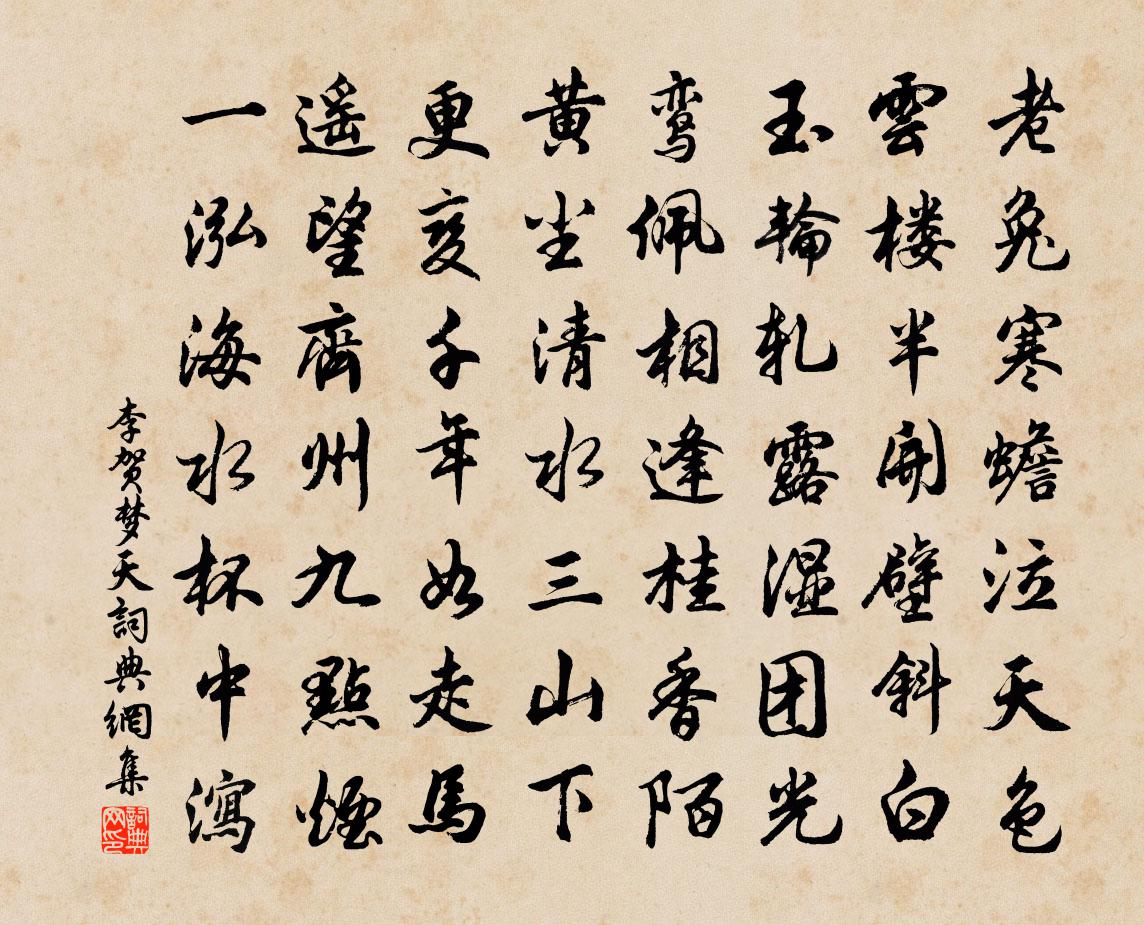 老兔寒蟾泣天色
雲楼半開壁斜白
玉輪軋露湿团光
鸾佩相逢桂香陌
黄尘清水三山下
更变千年如走馬
遥望齊州九點煙
一泓海水杯中瀉
李贺梦天詞典網集
詞典网印